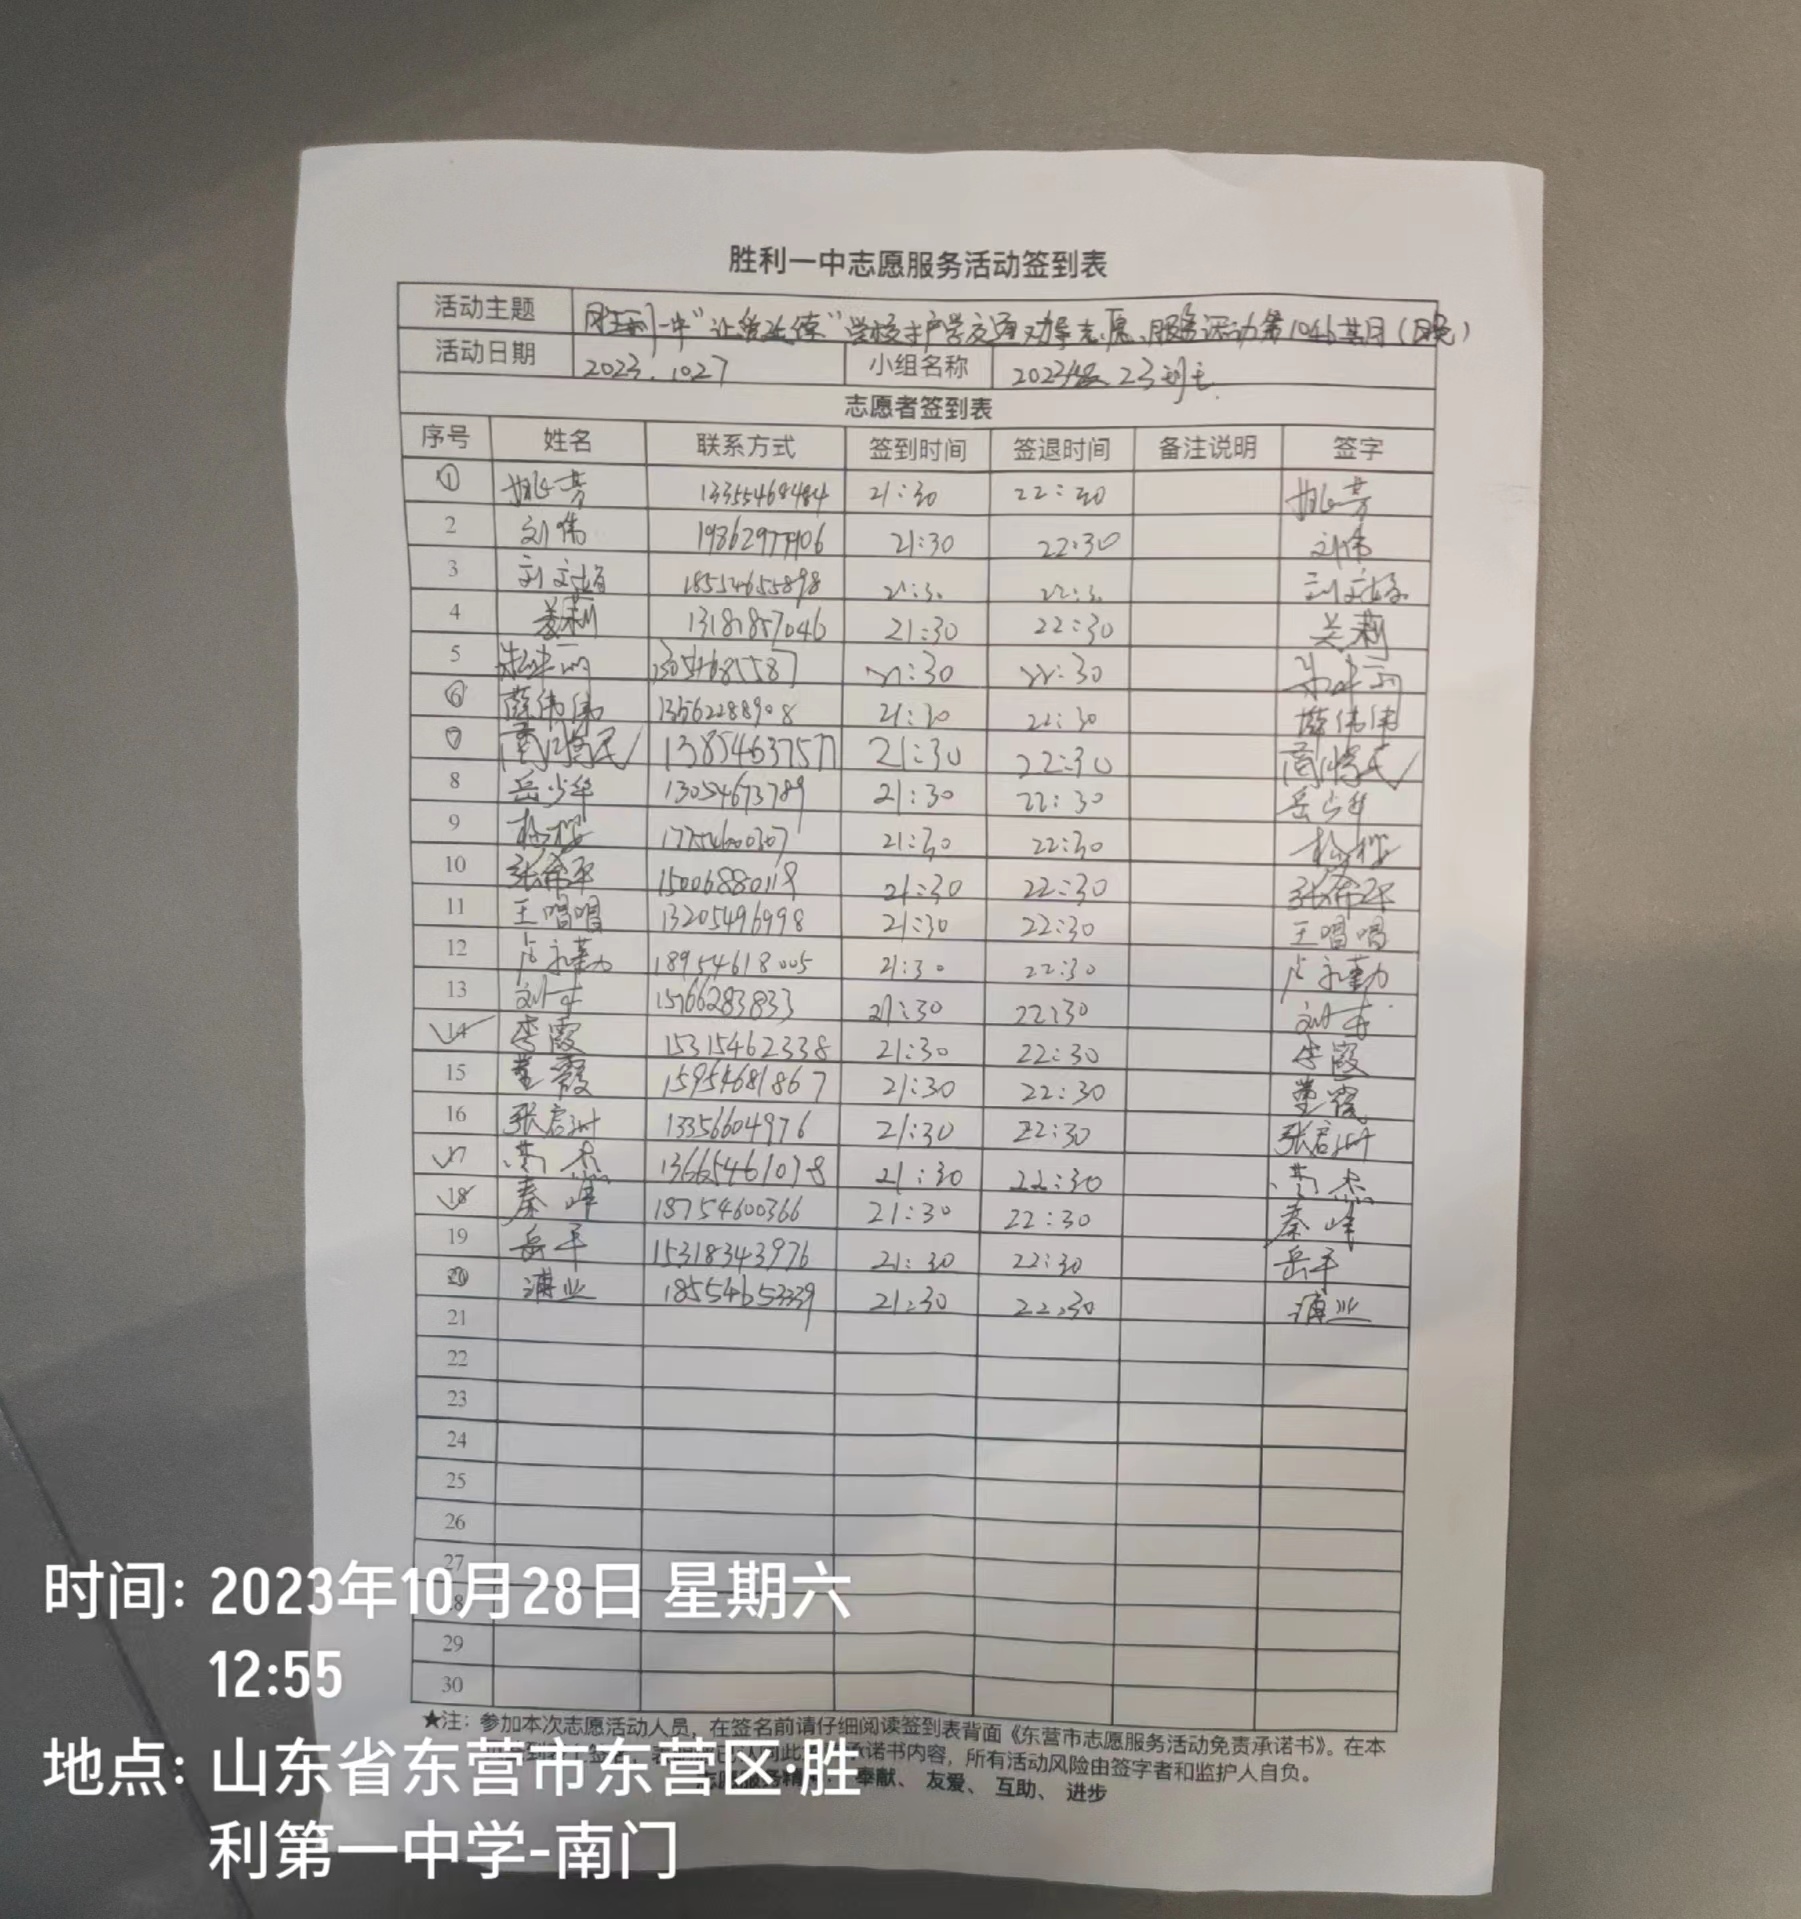 胜利一中志愿服务活动签到表
活动主题 胜利一中"让爱延续"学校护学交通劝导志愿服务活动第1046期(晚)
活动日期 2023.1027 小组名称 2023级23
志愿者签到表
序号 姓名 联系方式 签到时间 签退时间 备注说明 签字
1 姚芳 13355468484 21:30 22:30 姚芳
2 刘伟 21:30 22:30 刘伟
3 刘文娟 18554655898 21:30 22:30 刘文娟
4 21:30 22:30
5 13054685587 21:30 22:30
6 薛伟伟 13562288908 21:30 22:30 薛伟伟
7 13854637577 21:30 22:30
8 岳少华 13054673789 21:30 22:30 岳少华
9 杨樱 17754600307 21:30 22:30 杨樱
10 张希平 15006880118 21:30 22:30 张希平
11 王唱唱 13205496998 21:30 22:30 王唱唱
12 卢永勤 18954618005 21:30 22:30 卢永勤
13 15766283833 21:30 22:30
14 李霞 15315462338 21:30 22:30 李霞
15 董霞 15954681867 21:30 22:30 董霞
16 13356604976 21:30 22:30
17 13665461078 21:30 22:30
18 秦峰 18754600366 21:30 22:30 秦峰
19 岳平 15318343976 21:30 22:30 岳平
20 18554653339 21:30 22:30
21
22
23
24
25
26
27
28
29
30
★注：参加本次志愿活动人员，在签名前请仔细阅读签到表背面《东营市志愿服务活动免责承诺书》。在本
承诺书内容，所有活动风险由签字者和监护人自负。
志愿服务精神：奉献、友爱、互助、进步
时间: 2023年10月28日 星期六
12:55
地点: 山东省东营市东营区·胜
利第一中学-南门